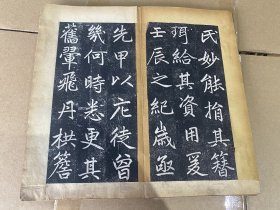 民妙能捐其簪
珥給其資用爰
壬辰之紀歲亟
先甲以庀徒曾
幾何時悉更其
舊翬飛丹栱簷